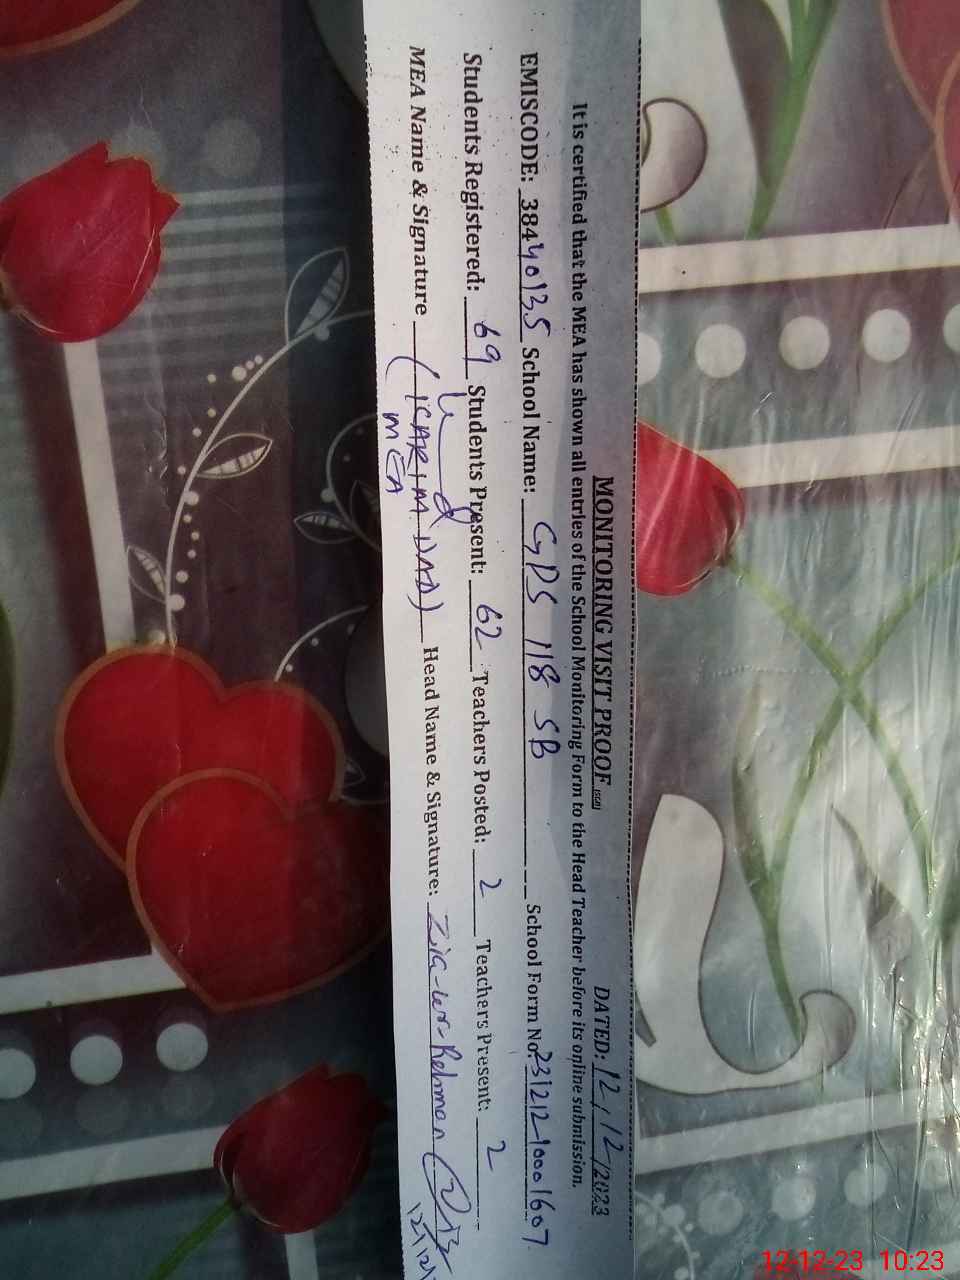 MONITORING VISIT PROOF (SCR) DATED: 12/12/2023
It is certified that the MEA has shown all entries of the School Monitoring Form to the Head Teacher before its online submission.
EMISCODE: 38440135 School Name: GPS 118 SB School Form No: 23121210001607
Students Registered: 69 Students Present: 62 Teachers Posted: 2 Teachers Present: 2
MEA Name & Signature (KARIM DAD) Head Name & Signature: Zia-ur-Rehman
MEA
12/12/
12-12-23 10:23